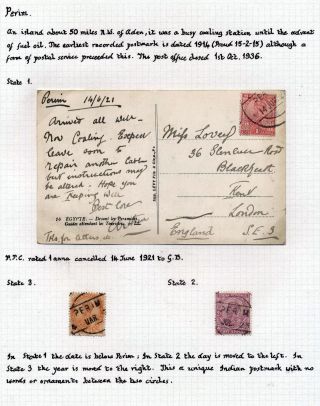 Perim.
An island about 50 miles N.W. of Aden, it was a busy coaling station until the advent
of fuel oil. The earliest recorded postmark is dated 1914 (Proud 15-2-15) although a
form of postal service preceded this. The post office closed 1st Oct, 1936.
State 1.
Perim 14/6/21
Arrived all well -
Now Coaling. Expect
leave soon to
repair another cable
but instructions may
be altered. Hope you
are keeping well
Best love
Miss Lovey
36 Glenluce Road
Blackheath
Kent
London
England S.E.3
P.P.C. rated 1 anna cancelled 14 June 1921 to G.B.
State 3. State 2.
PERIM
MAR
PERIM
In State 1 the date is below Perim; In State 2 the day is moved to the left. In
State 3 the year is moved to the right. This a unique Indian postmark with no
words or ornaments between the two circles.